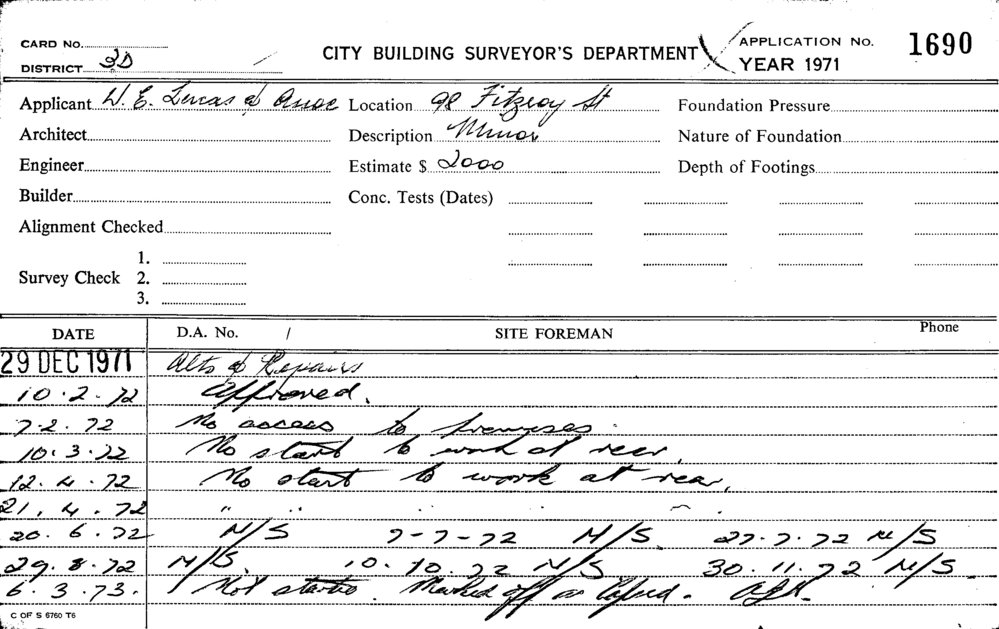 CARD No.
DISTRICT 3D
CITY BUILDING SURVEYOR'S DEPARTMENT
APPLICATION No. 1690
YEAR 1971
Applicant W. E. Lucas & Assoc Location 98 Fitzroy St Foundation Pressure
Architect Description Minor Nature of Foundation
Engineer Estimate $ 2000 Depth of Footings
Builder Conc. Tests (Dates)
Alignment Checked
1.
Survey Check 2.
3.
DATE D.A. No. / SITE FOREMAN Phone
29 DEC 1971 Alts & Repairs
10.2.72 Approved.
7.2.72 No access to premises.
10.3.72 No start to work at rear.
12.4.72 No start to work at rear.
21.4.72 " " " " "
20.6.72 N/S 7-7-72 N/S. 27.7.72 N/S
29.8.72 N/S. 10.10.72 N/S 30.11.72 N/S
6.3.73. Not started. Marked off as lapsed.
C OF S 6760 T6